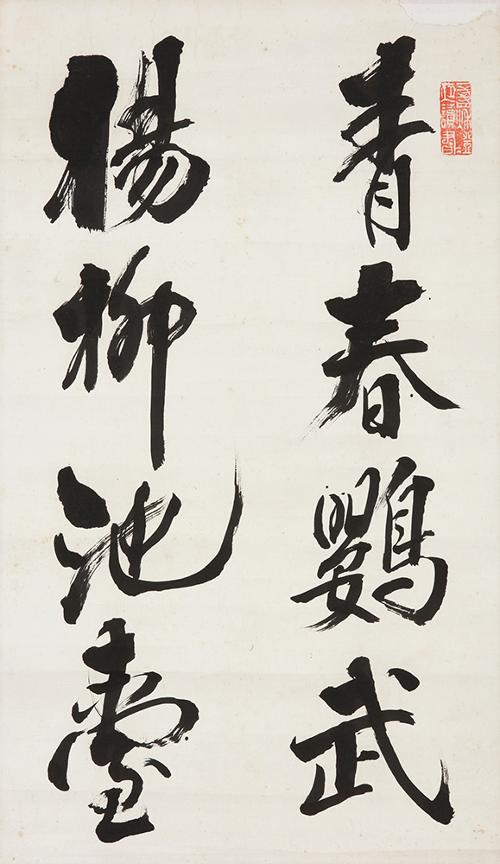 青春鸚武
楊柳池臺